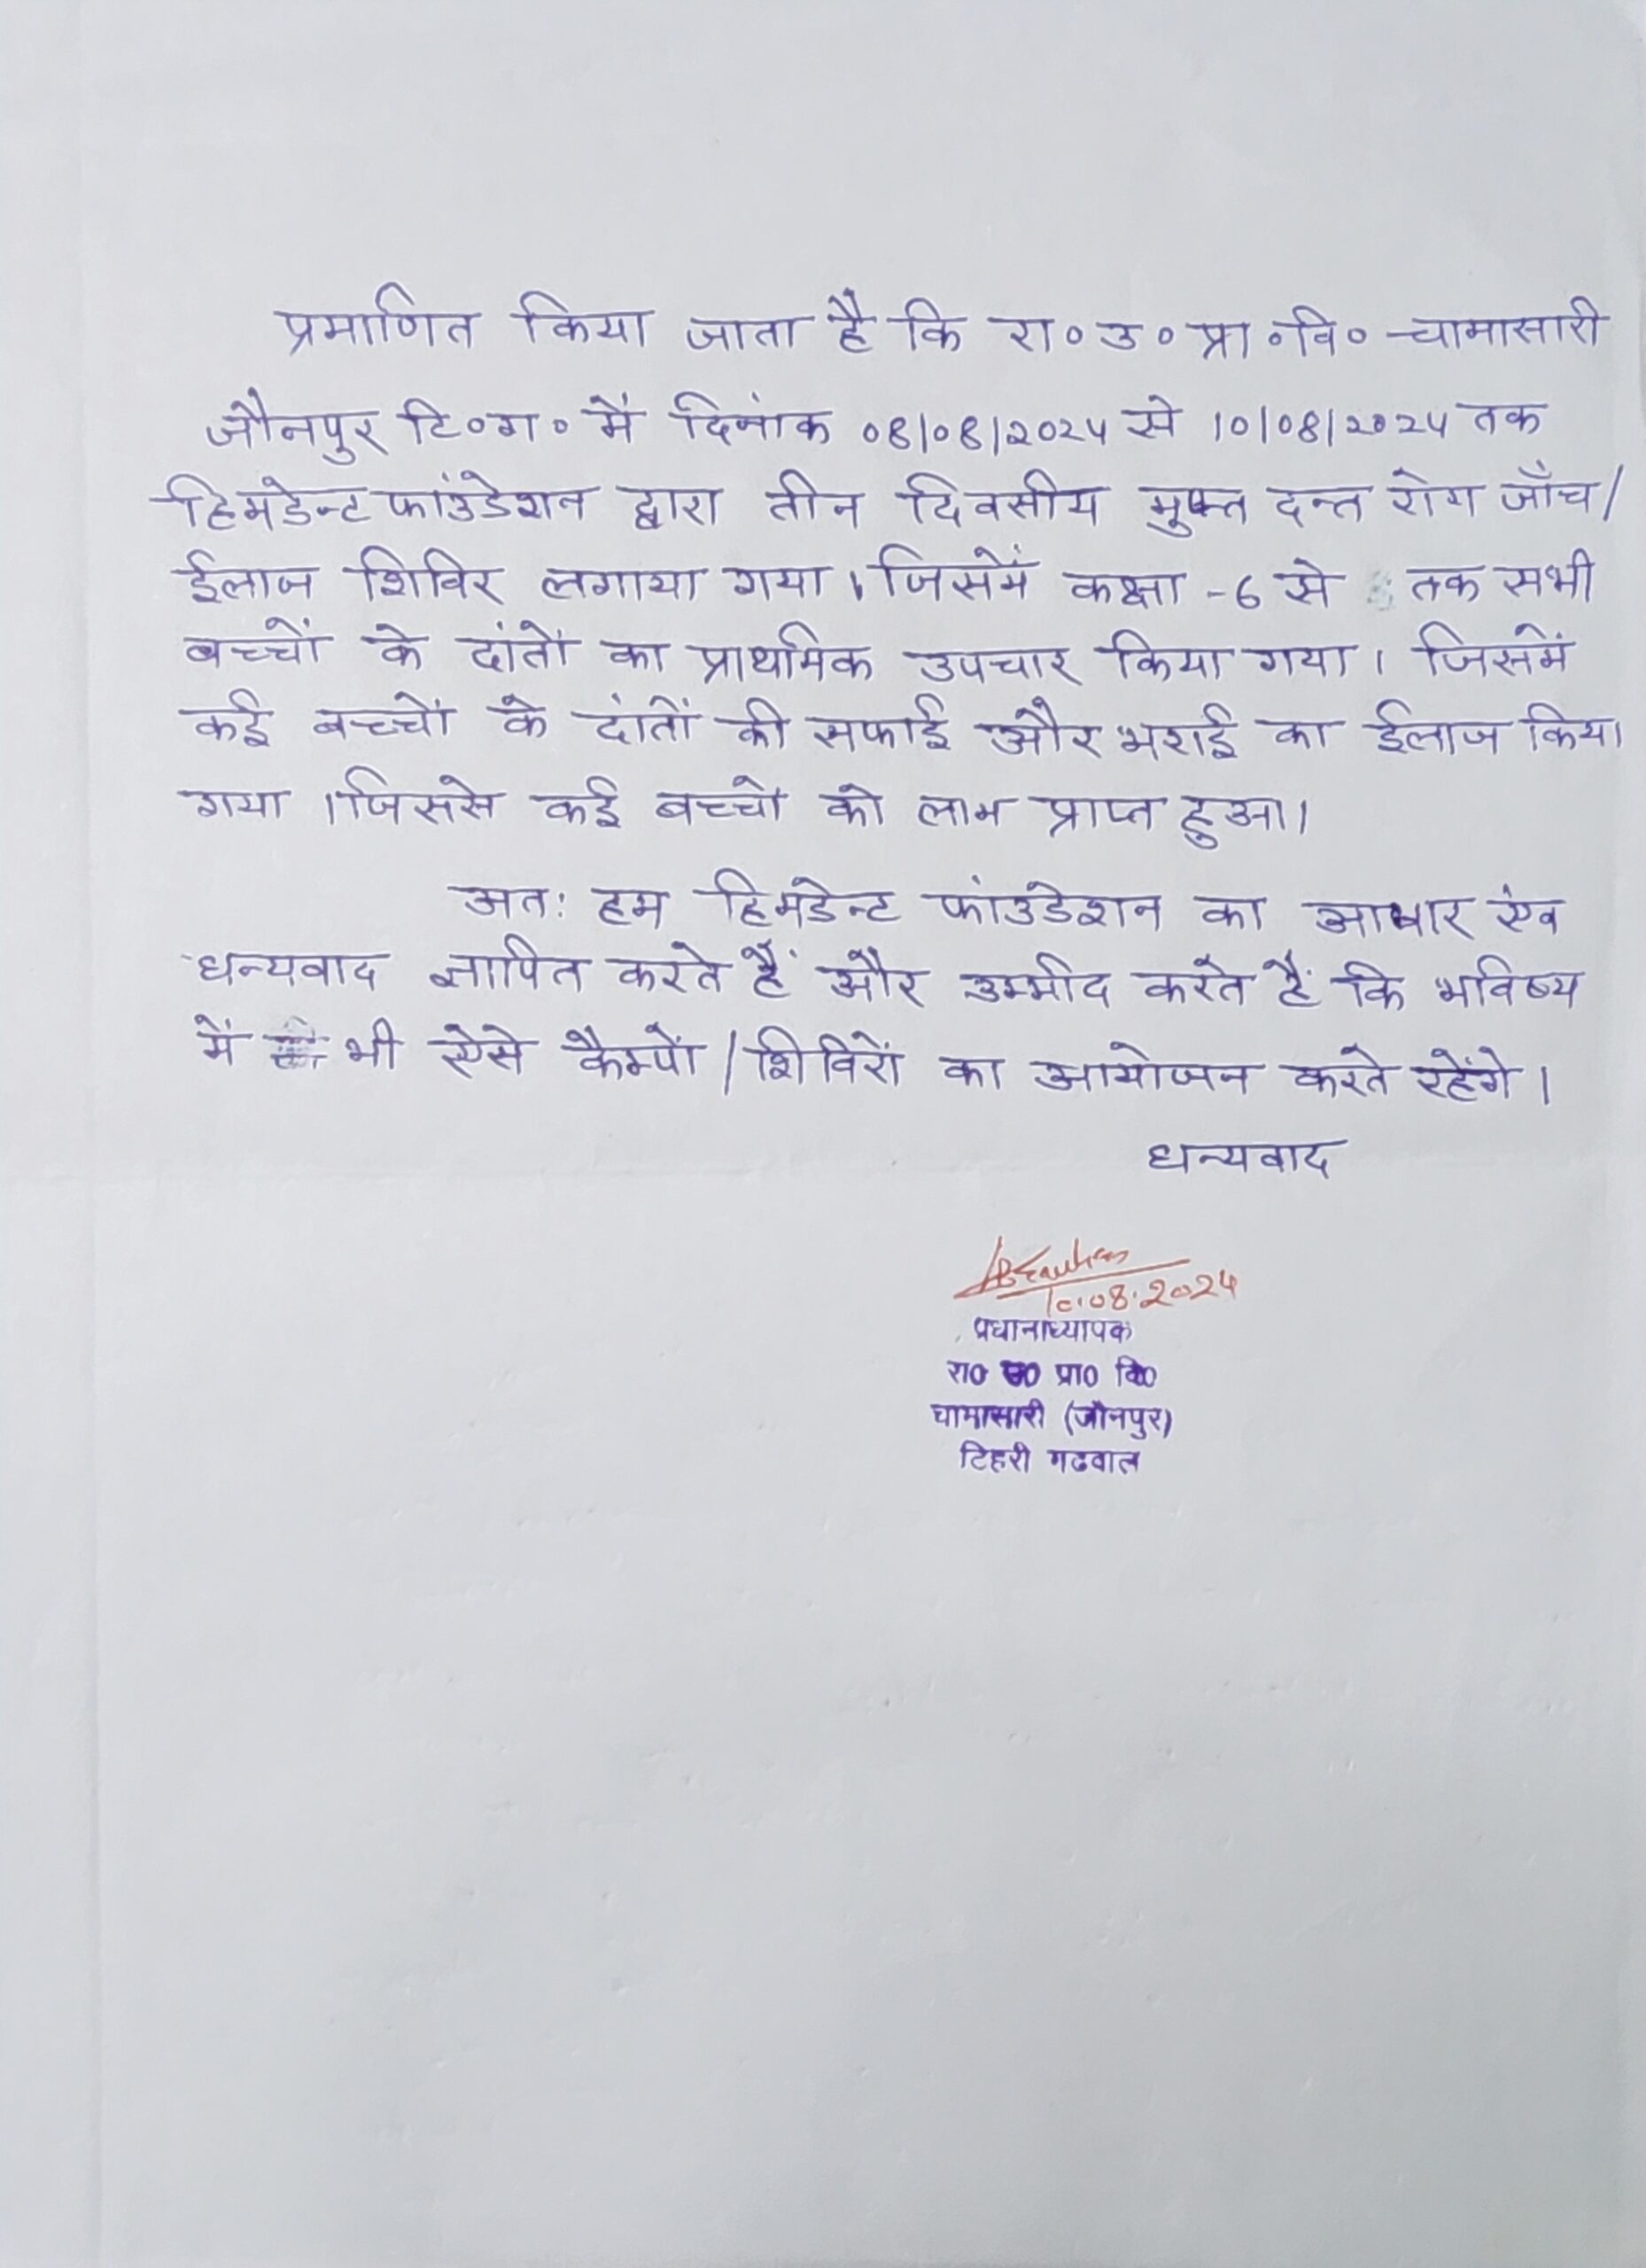 प्रमाणित किया जाता है कि रा०उ०प्रा०वि० चामासारी
जौनपुर टि०ग० में दिनांक 08/08/2024 से 10/08/2024 तक
हिमडेन्ट फांउडेशन द्वारा तीन दिवसीय मुफ्त दन्त रोग जाँच/
ईलाज शिविर लगाया गया। जिसमें कक्षा -6 से तक सभी
बच्चों के दांतों का प्राथमिक उपचार किया गया। जिसमें
कई बच्चों के दांतों की सफाई और भराई का ईलाज किया
गया। जिससे कई बच्चों को लाभ प्राप्त हुआ।
अतः हम हिमडेन्ट फांउडेशन का आभार एंव
धन्यवाद ज्ञापित करते हैं और उम्मीद करते हैं कि भविष्य
में भी ऐसे कैम्पों/शिविरों का आयोजन करते रहेंगे।
धन्यवाद
10.08.2024
प्रधानाध्यापक
रा० उ० प्रा० वि०
चामासारी (जौनपुर)
टिहरी गढवाल